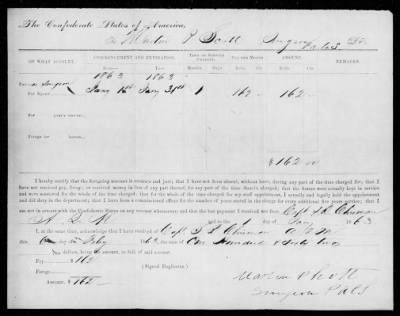 The Confederate States of America,
To Martin P Scott Surgeon PACS Dr.
ON WHAT ACCOUNT. COMMENCEMENT AND EXPIRATION. TERM OF SERVICE CHARGED. PAY PER MONTH AMOUNT. REMARKS.
Months. Days. Dolls. Cts. Dolls. Cts.
1863 1863
Surgeon
Pay Jany 1st Jany 31st 1 162 - 162 -
For years' service
Forage for horses
$ 162 00
I hereby certify that the foregoing account is accurate and just; that I have not been absent, without leave, during any part of the time charged for; that I
have not received pay, forage, or received money in lieu of any part thereof, for any part of the time therein charged; that the horses were actually kept in service
and were mustered for the whole of the time charged; that for the whole of the time charged for my staff appointment, I actually and legally held the appointment
and did duty in the department; that I have been a commissioned officer for the number of years stated in the charge for every additional five years service; that I
am not in arrears with the Confederate States on any account whatsoever; and that the last payment I received was from Capt
and to the day of Jany 1863
I, at the same time, acknowledge that I have received of Capt
this day of Feby 1863, the sum of One Hundred & Sixty two
dollars, being the amount, in full, of said account.
Pay $162
Forage
Amount, $162
(Signed Duplicates.)
Martin P Scott
Surgeon PACS